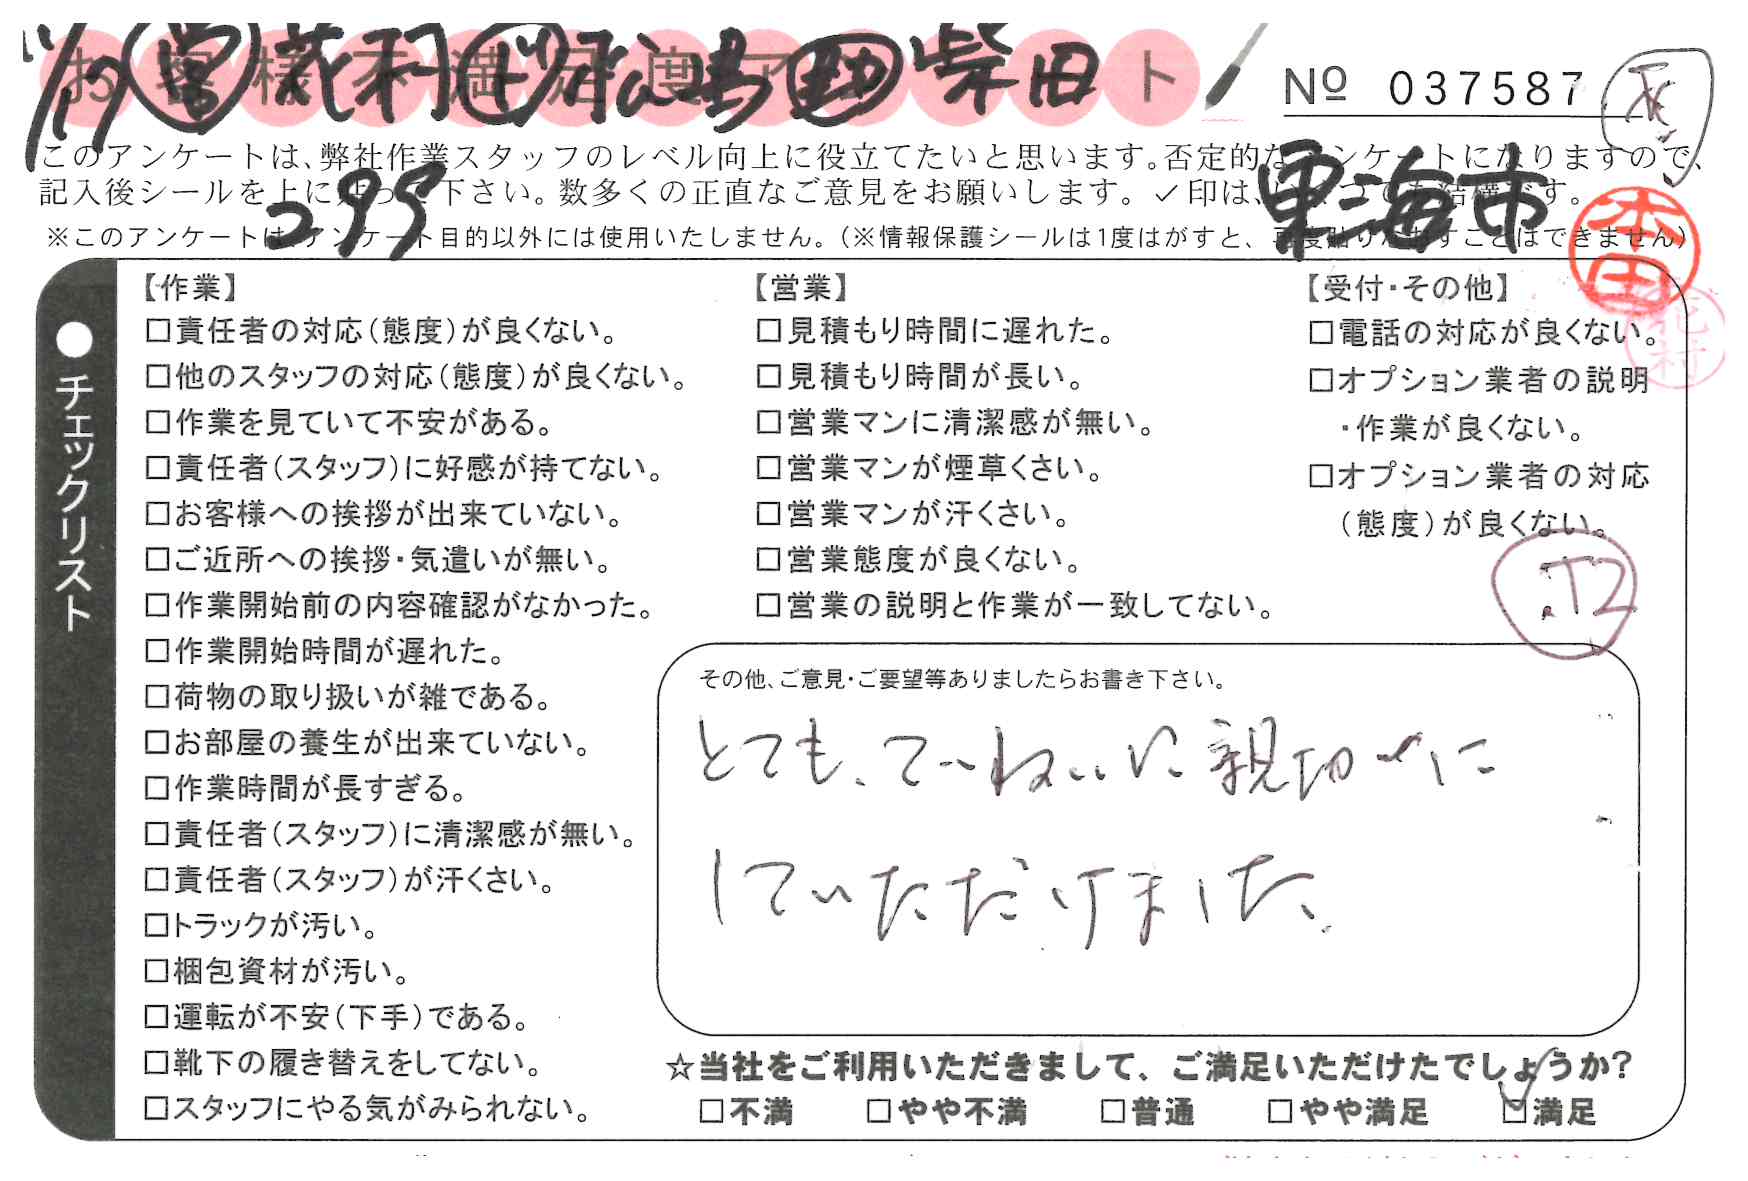 お客様不満足度アンケート
11/17 営 花村 作 松島 助 柴田
№ 037587
このアンケートは、弊社作業スタッフのレベル向上に役立てたいと思います。否定的なアンケートになりますので、
記入後シールを上に貼って下さい。数多くの正直なご意見をお願いします。✓印は、いくつでも結構です。
299
東海市
※このアンケートは、アンケート目的以外には使用いたしません。(※情報保護シールは1度はがすと、再度貼りなおすことはできません)
本田
花村
●チェックリスト
【作業】
□責任者の対応(態度)が良くない。
□他のスタッフの対応(態度)が良くない。
□作業を見ていて不安がある。
□責任者(スタッフ)に好感が持てない。
□お客様への挨拶が出来ていない。
□ご近所への挨拶・気遣いが無い。
□作業開始前の内容確認がなかった。
□作業開始時間が遅れた。
□荷物の取り扱いが雑である。
□お部屋の養生が出来ていない。
□作業時間が長すぎる。
□責任者(スタッフ)に清潔感が無い。
□責任者(スタッフ)が汗くさい。
□トラックが汚い。
□梱包資材が汚い。
□運転が不安(下手)である。
□靴下の履き替えをしてない。
□スタッフにやる気がみられない。
【営業】
□見積もり時間に遅れた。
□見積もり時間が長い。
□営業マンに清潔感が無い。
□営業マンが煙草くさい。
□営業マンが汗くさい。
□営業態度が良くない。
□営業の説明と作業が一致してない。
【受付・その他】
□電話の対応が良くない。
□オプション業者の説明
・作業が良くない。
□オプション業者の対応
(態度)が良くない。
その他、ご意見・ご要望等ありましたらお書き下さい。
とても、てーねいに親切に
していただけました。
☆当社をご利用いただきまして、ご満足いただけたでしょうか?
□不満 □やや不満 □普通 □やや満足 ☑満足